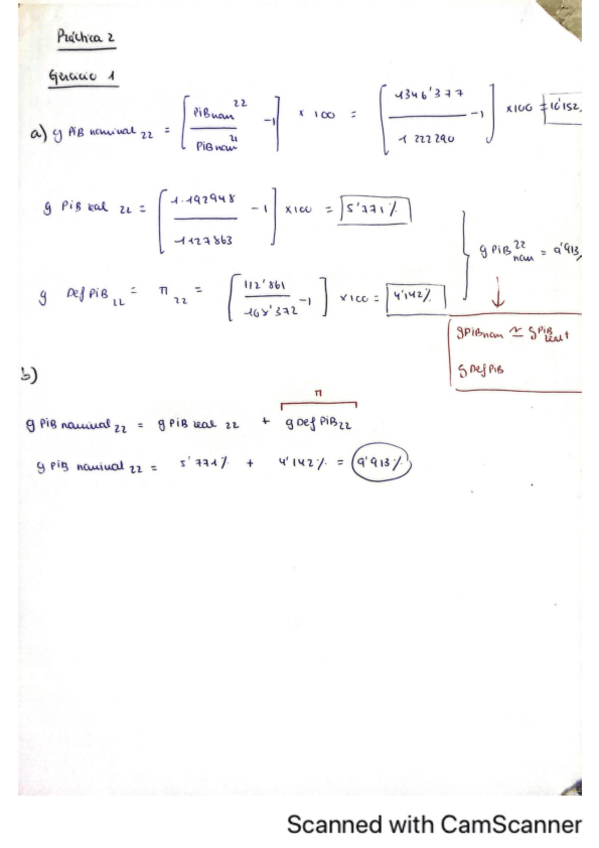 Práctica 2
Ejercicio 1
a) g PiB nominal 22 = [ PiBnom 22 / PiBnom 21 -1 ] x 100 = [ 1346'377 / 1 222290 -1 ] x100 = 10'152
g PiB real 22 = [ 1.192948 / 1127863 -1 ] x100 = 5'771%
g PiB nom 22 = 9'913
g Def PiB 22 = π 22 = [ 112'861 / 108'372 -1 ] x100 = 4'142%
gPiBnom ≃ gPiB real +
gDefPiB
b)
π
g PiB nominal 22 = g PiB real 22 + g Def PiB 22
g PiB nominal 22 = 5'771% + 4'142% = 9'913%
Scanned with CamScanner